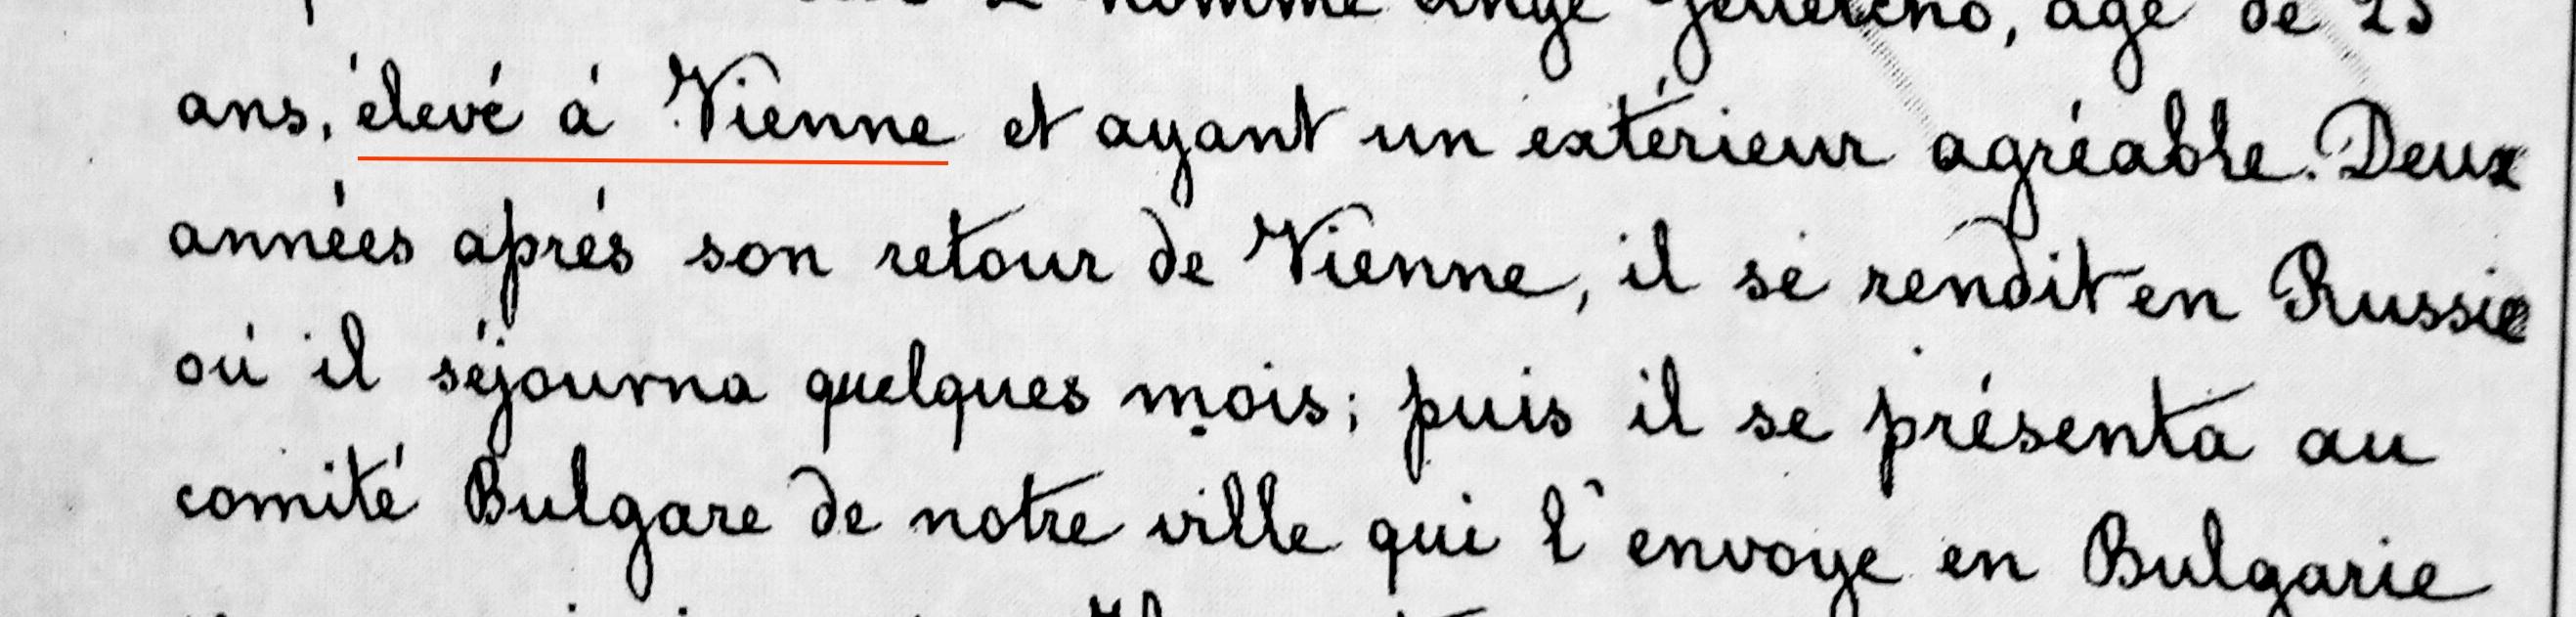 homme ange âgé de 25
ans, élevé à Vienne et ayant un extérieur agréable. Deux
années après son retour de Vienne, il se rendit en Russie
où il séjourna quelques mois; puis il se présenta au
comité Bulgare de notre ville qui l'envoye en Bulgarie